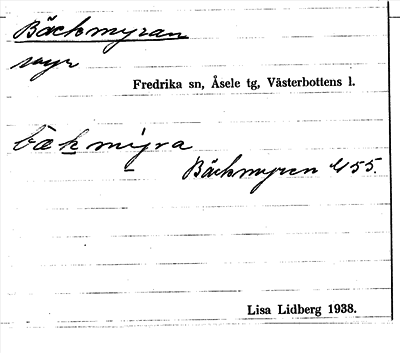 Bäckmyran
myr
Fredrika sn, Åsele tg, Västerbottens l.
bæk mýra
Bäckmyren
Lisa Lidberg 1938.